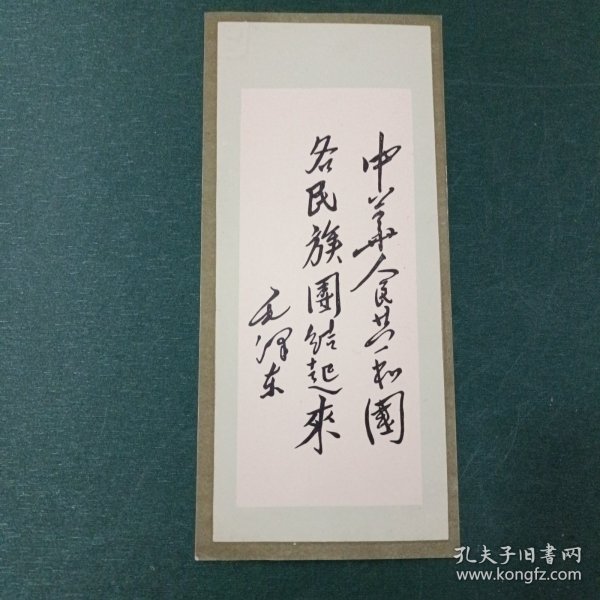 中华人民共和國
各民族團結起來
毛澤东
孔夫子旧書网
www.kongfz.com